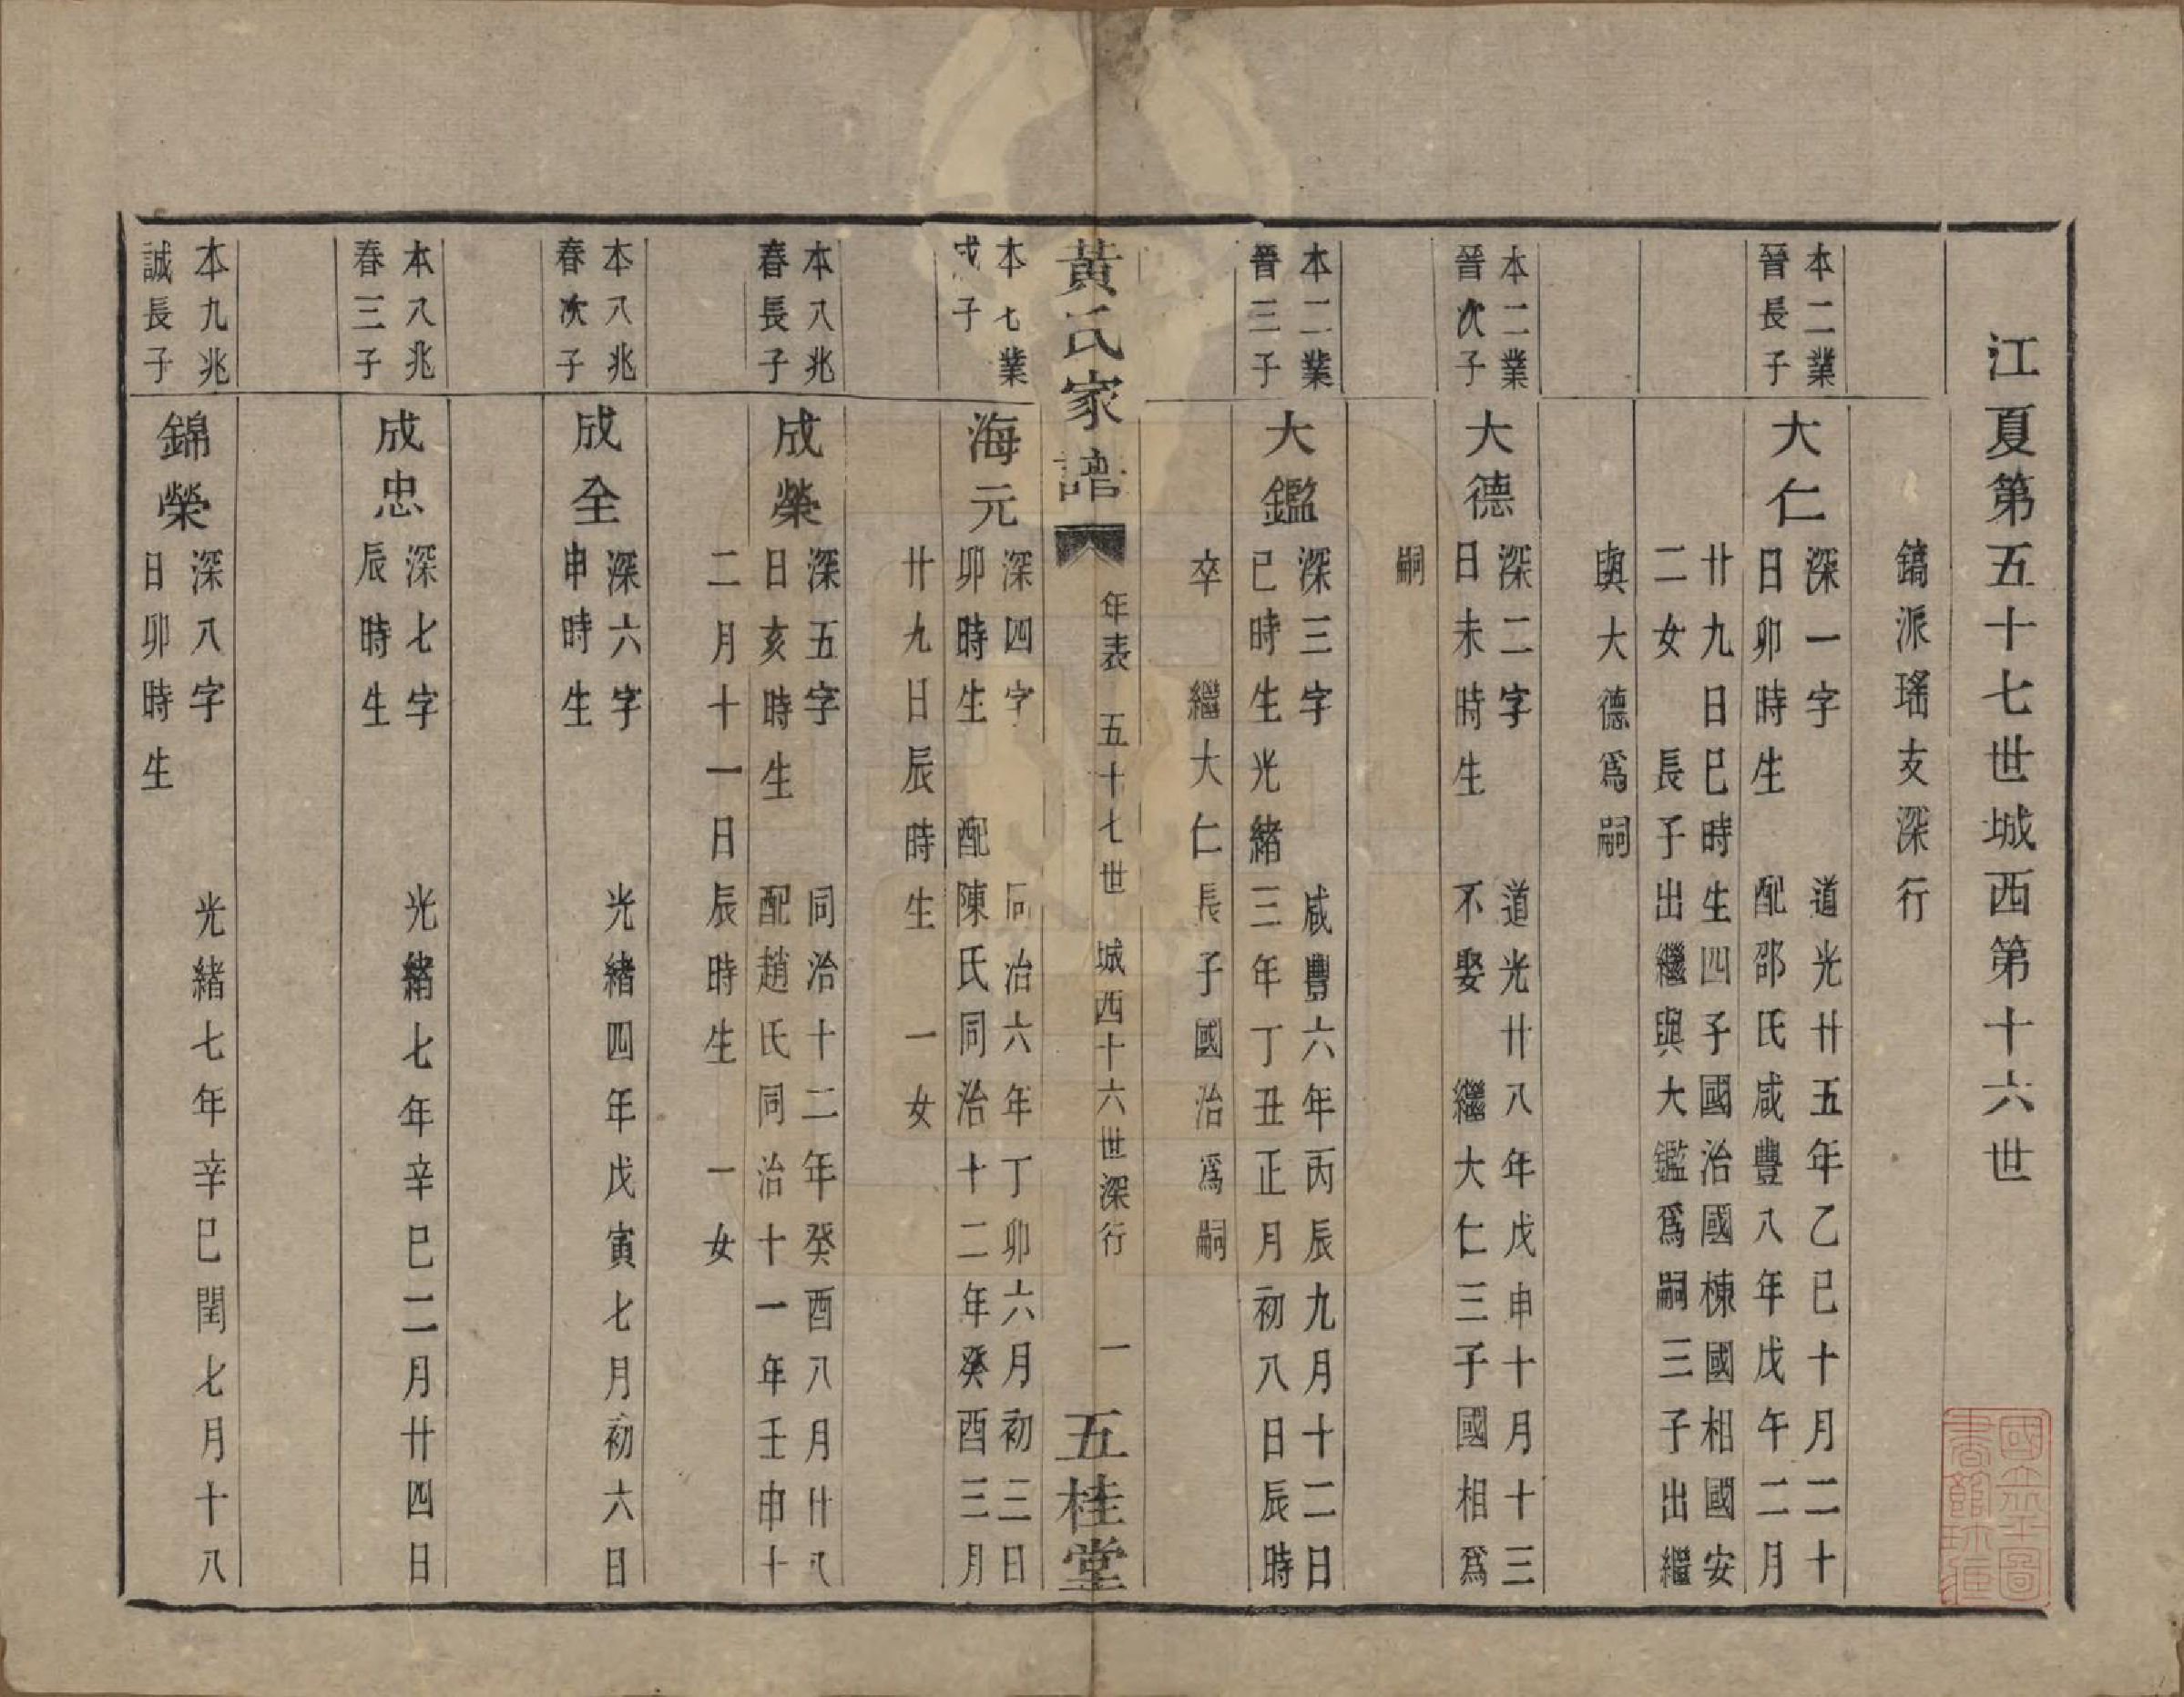 江夏第五十七世城西第十六世
鎬派瑤支深行
本二業
晉長子
大仁
深一字 道光廿五年乙巳十月二十
日卯時生 配邵氏咸豐八年戊午二月
廿九日巳時生四子國治國棟國相國安
二女 長子出繼與大鑑爲嗣三子出繼
與大德爲嗣
本二業
晉次子
大德
深二字 道光廿八年戊申十月十三
日未時生 不娶 繼大仁三子國相爲
嗣
本二業
晉三子
大鑑
深三字 咸豐六年丙辰九月十二日
巳時生光緒三年丁丑正月初八日辰時
卒 繼大仁長子國治爲嗣
黃氏家譜 年表 五十七世 城西十六世深行 一 五桂堂
本七業
戎子
海元
深四字 同治六年丁卯六月初三日
卯時生 配陳氏同治十二年癸酉三月
廿九日辰時生 一女
本八兆
春長子
成榮
深五字 同治十二年癸酉八月廿八
日亥時生 配趙氏同治十一年壬申十
二月十一日辰時生 一女
本八兆
春次子
成全
深六字 光緒四年戊寅七月初六日
申時生
本八兆
春三子
成忠
深七字 光緒七年辛巳二月廿四日
辰時生
本九兆
誠長子
錦榮
深八字 光緒七年辛巳閏七月十八
日卯時生